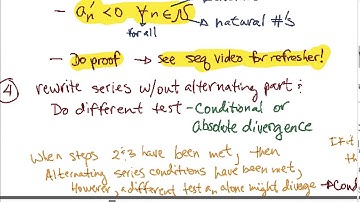 - aₙ' < 0 ∀ n ∈ ℕ
→ natural #'s
for all
- Do proof → see seq video for refresher!
④ rewrite series w/out alternating part :
Do different test - Conditional or
Absolute divergence
When steps 2 : 3 have been met, then
Alternating series conditions have been met,
However, a different test an alone might diverge → Con
If t
th